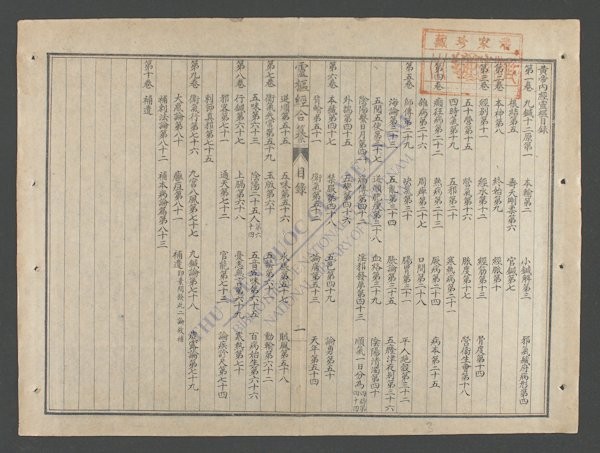 黃帝內經靈樞目錄
第一卷 九鍼十二原第一 本輸第二 小鍼解第三 邪氣藏府病形第四
第二卷 根結第五 壽夭剛柔第六 官鍼第七
本神第八 終始第九 經脈第十
第三卷 經別第十一 經水第十二 經筋第十三 骨度第十四
五十營第十五 營氣第十六 脈度第十七 營衛生會第十八
第四卷 四時氣第十九 五邪第二十 寒熱病第二十一
癲狂病第二十二 熱病第二十三 厥病第二十四 病本第二十五
雜病第二十六 周痺第二十七 口問第二十八
第五卷 師傳第二十九 決氣第三十 腸胃第三十一 平人絕穀第三十二
海論第三十三 五亂第三十四 脹論第三十五 五癃津液別第三十六
五閱五使第三十七 逆順肥瘦第三十八 血絡第三十九 陰陽清濁第四十
陰陽繫日月第四十一 病傳第四十二 淫邪發夢第四十三 順氣一日分為四時第四十四
第六卷 外揣第四十五 五變第四十六
本藏第四十七 禁服第四十八 五色第四十九 論勇第五十
背腧第五十一 衛氣第五十二 論痛第五十三 天年第五十四
靈樞經合纂 目錄 一
逆順第五十五 五味第五十六 水脹第五十七 賊風第五十八
第七卷 衛氣失常第五十九 玉版第六十 五禁第六十一 動輸第六十二
五味第六十三 陰陽二十五人第六十四 五音五味第六十五 百病始生第六十六
第八卷 行鍼第六十七 上膈第六十八 憂恚無言第六十九 寒熱第七十
邪客第七十一 通天第七十二 官能第七十三 論疾診尺第七十四
刺節真邪第七十五
第九卷 衛氣行第七十六 九宮八風第七十七 九鍼論第七十八 歲露論第七十九
大惑論第八十 癰疽第八十一 補遺
補刺法論第八十二 補本病論第八十三
第十卷 補遺
家珍藏
THƯ VIỆN QUỐC GIA
NATIONAL LIBRARY OF VIETNAM